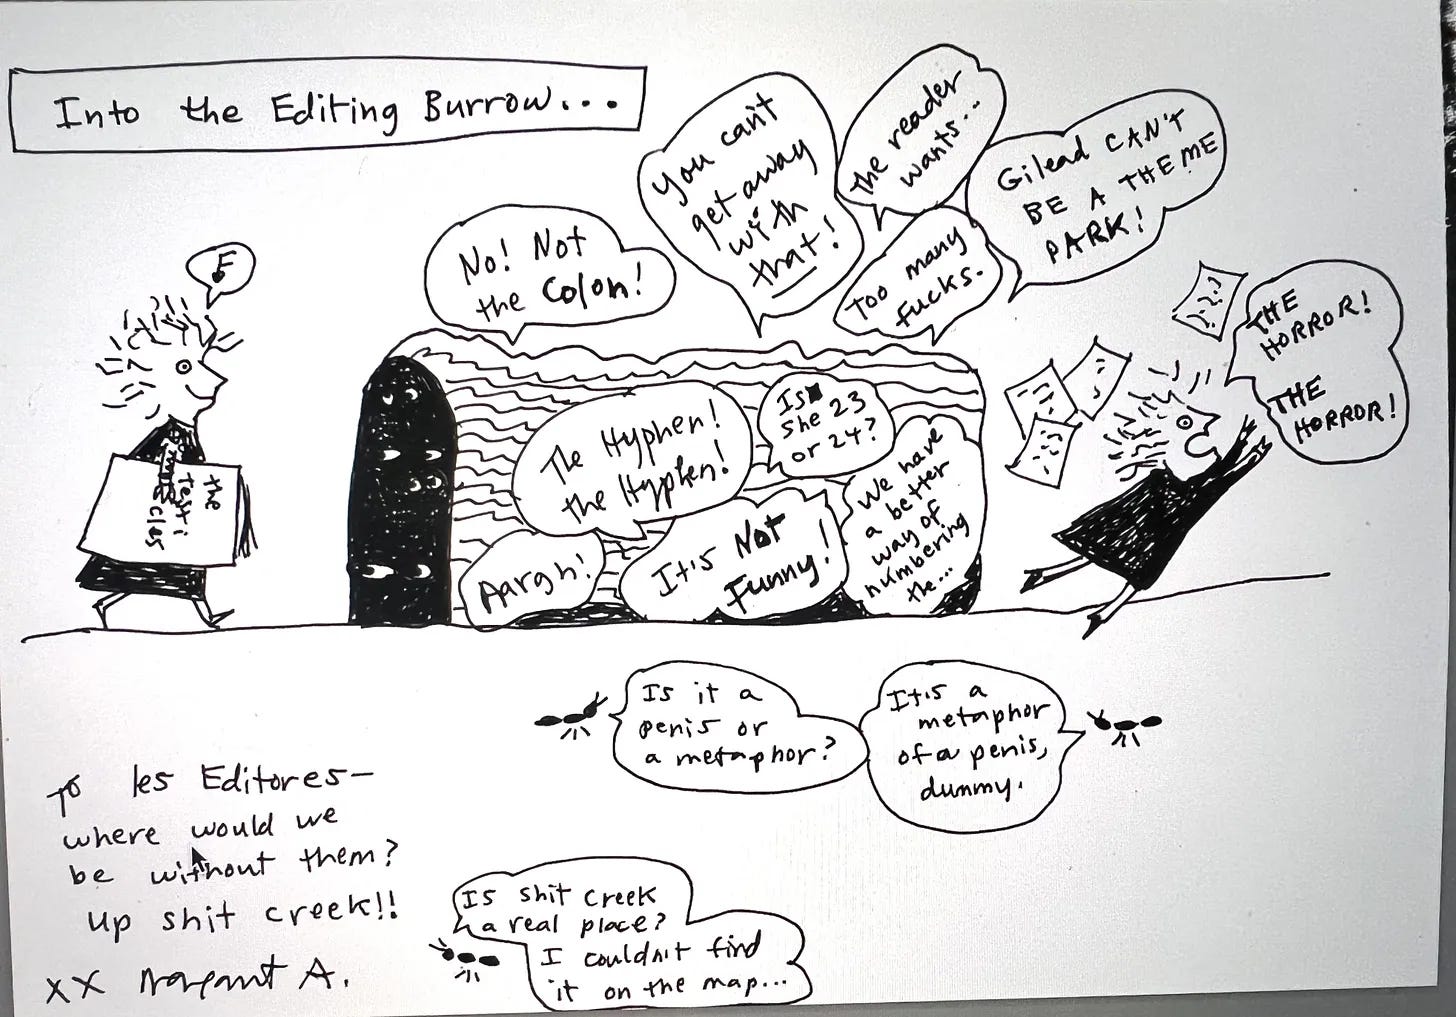 Into the Editing Burrow...
No! Not
the Colon!
You can't
get away
with
that!
The reader
wants...
Too many
fucks.
Gilead CAN'T
BE A THEME
PARK!
THE
HORROR!
THE
HORROR!
the
Testi
cles
The Hyphen!
the Hyphen!
Is
she 23
or 24?
We have
a better
way of
numbering
the...
Aargh!
It's Not
Funny!
Is it a
penis or
a metaphor?
It's a
metaphor
of a penis,
dummy.
To les Editores—
where would we
be without them?
up shit creek!!
xx Margaret A.
Is shit creek
a real place?
I couldn't find
it on the map...